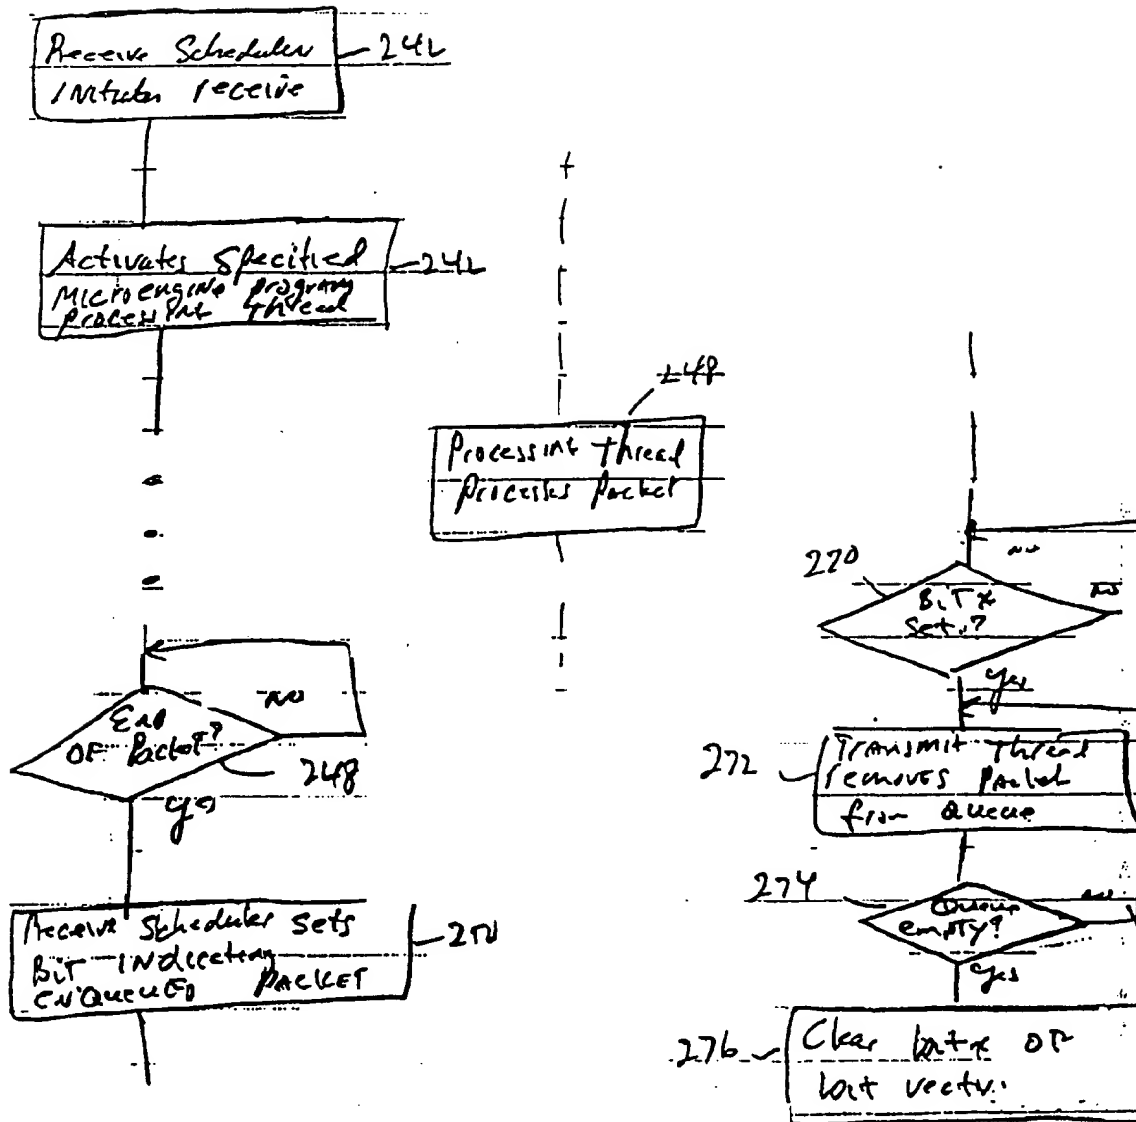 Receive Scheduler
Initiates receive
242
Activates Specified
Microengine program
Processing thread
242
248
Processing thread
Processes Packet
End
OF Packet?
NO
248
yes
Receive Scheduler Sets
BIT INdicating
ENQUEUED PACKET
250
270
BiT x
Set?
NO
NO
yes
272
TRANSMIT Thread
removes Packet
from Queue
274
Queue
empty?
NO
yes
276
Clear bit x OF
bit vector